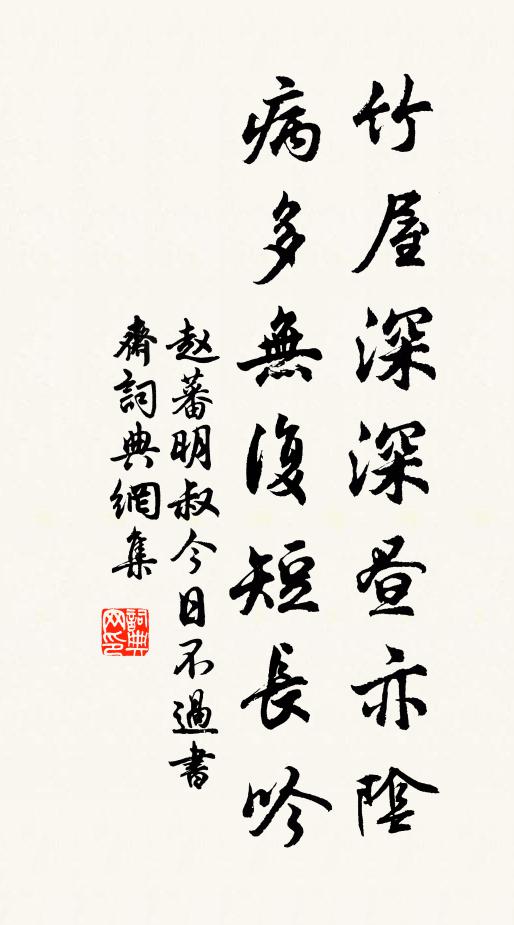 竹屋深深昼亦陰
病多無復短長吟
赵蕃明叔今日不過書
齋詞典網集
詞典网印